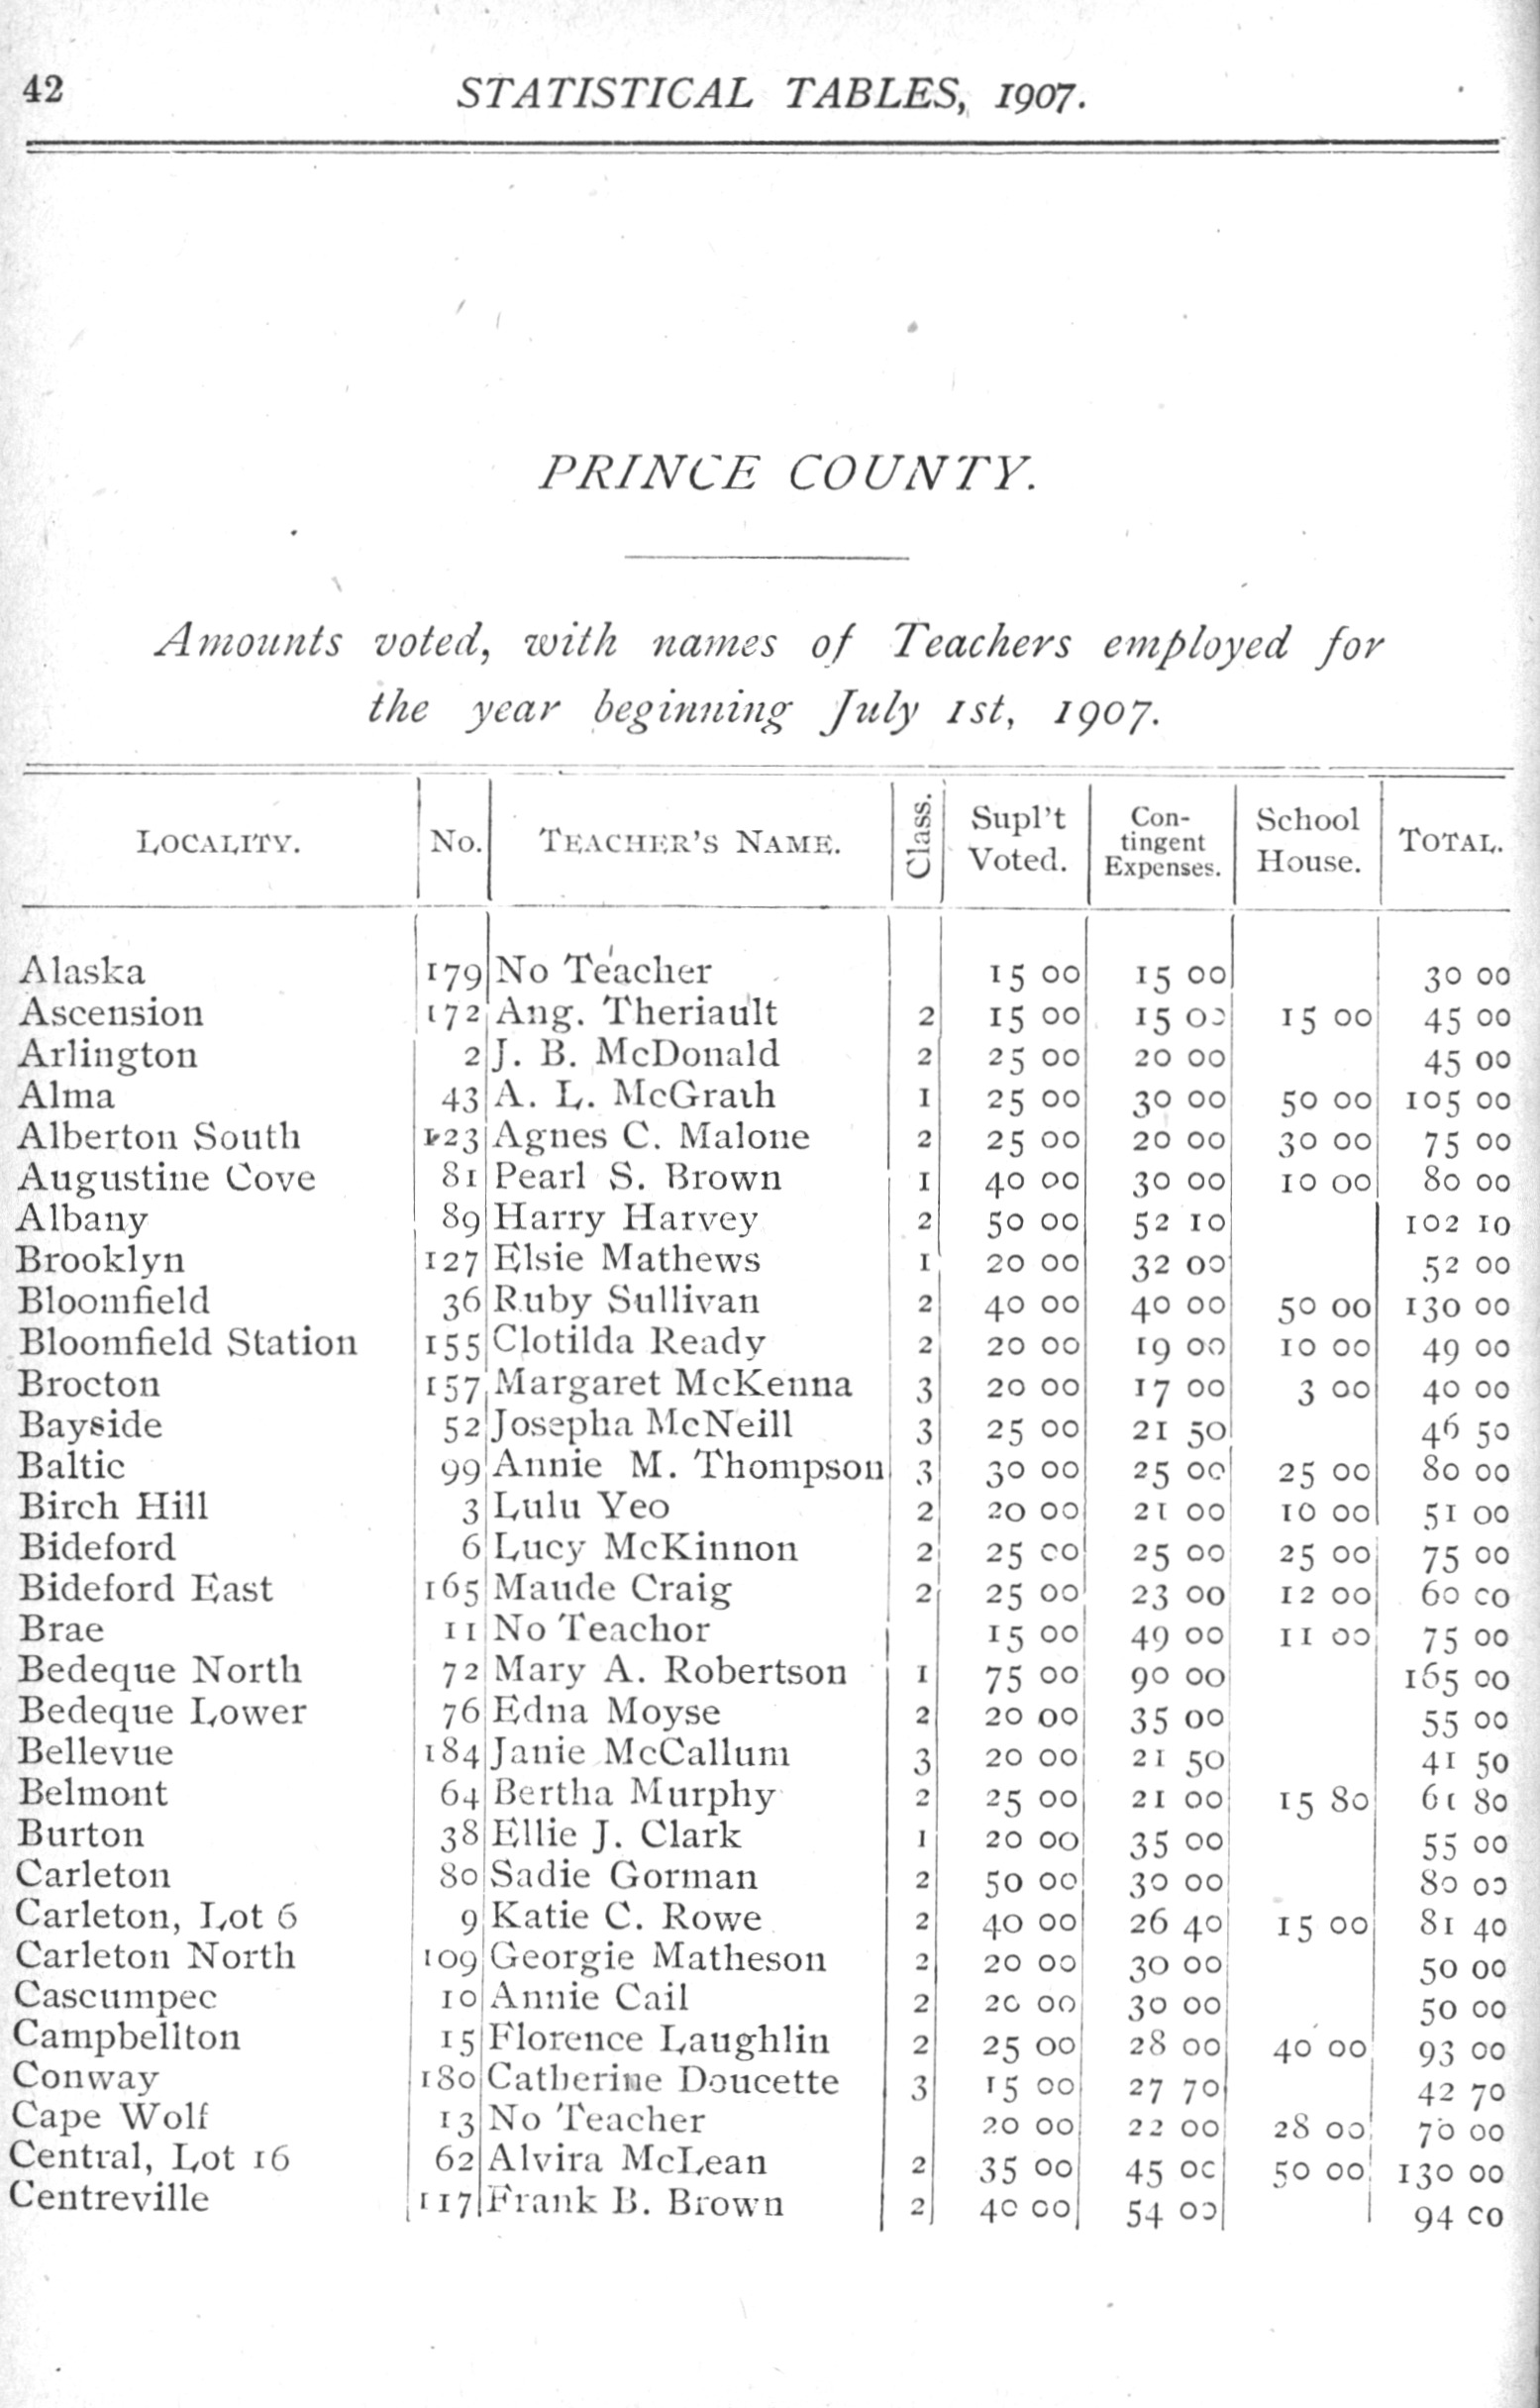 42 STATISTICAL TABLES, 1907.
PRINCE COUNTY.
Amounts voted, with names of Teachers employed for
the year beginning July 1st, 1907.
LOCALITY. No. TEACHER'S NAME. Class. Supl't Voted. Con-tingent Expenses. School House. TOTAL.
Alaska 179 No Teacher 15 00 15 00 30 00
Ascension 172 Ang. Theriault 2 15 00 15 00 15 00 45 00
Arlington 2 J. B. McDonald 2 25 00 20 00 45 00
Alma 43 A. L. McGrath 1 25 00 30 00 50 00 105 00
Alberton South 123 Agnes C. Malone 2 25 00 20 00 30 00 75 00
Augustine Cove 81 Pearl S. Brown 1 40 00 30 00 10 00 80 00
Albany 89 Harry Harvey 2 50 00 52 10 102 10
Brooklyn 127 Elsie Mathews 1 20 00 32 00 52 00
Bloomfield 36 Ruby Sullivan 2 40 00 40 00 50 00 130 00
Bloomfield Station 155 Clotilda Ready 2 20 00 19 00 10 00 49 00
Brocton 157 Margaret McKenna 3 20 00 17 00 3 00 40 00
Bayside 52 Josepha McNeill 3 25 00 21 50 46 50
Baltic 99 Annie M. Thompson 3 30 00 25 00 25 00 80 00
Birch Hill 3 Lulu Yeo 2 20 00 21 00 10 00 51 00
Bideford 6 Lucy McKinnon 2 25 00 25 00 25 00 75 00
Bideford East 165 Maude Craig 2 25 00 23 00 12 00 60 00
Brae 11 No Teachor 15 00 49 00 11 00 75 00
Bedeque North 72 Mary A. Robertson 1 75 00 90 00 165 00
Bedeque Lower 76 Edna Moyse 2 20 00 35 00 55 00
Bellevue 184 Janie McCallum 3 20 00 21 50 41 50
Belmont 64 Bertha Murphy 2 25 00 21 00 15 80 61 80
Burton 38 Ellie J. Clark 1 20 00 35 00 55 00
Carleton 80 Sadie Gorman 2 50 00 30 00 80 00
Carleton, Lot 6 9 Katie C. Rowe 2 40 00 26 40 15 00 81 40
Carleton North 109 Georgie Matheson 2 20 00 30 00 50 00
Cascumpec 10 Annie Cail 2 20 00 30 00 50 00
Campbellton 15 Florence Laughlin 2 25 00 28 00 40 00 93 00
Conway 180 Catherine Doucette 3 15 00 27 70 42 70
Cape Wolf 13 No Teacher 20 00 22 00 28 00 70 00
Central, Lot 16 62 Alvira McLean 2 35 00 45 00 50 00 130 00
Centreville 117 Frank B. Brown 2 40 00 54 00 94 00